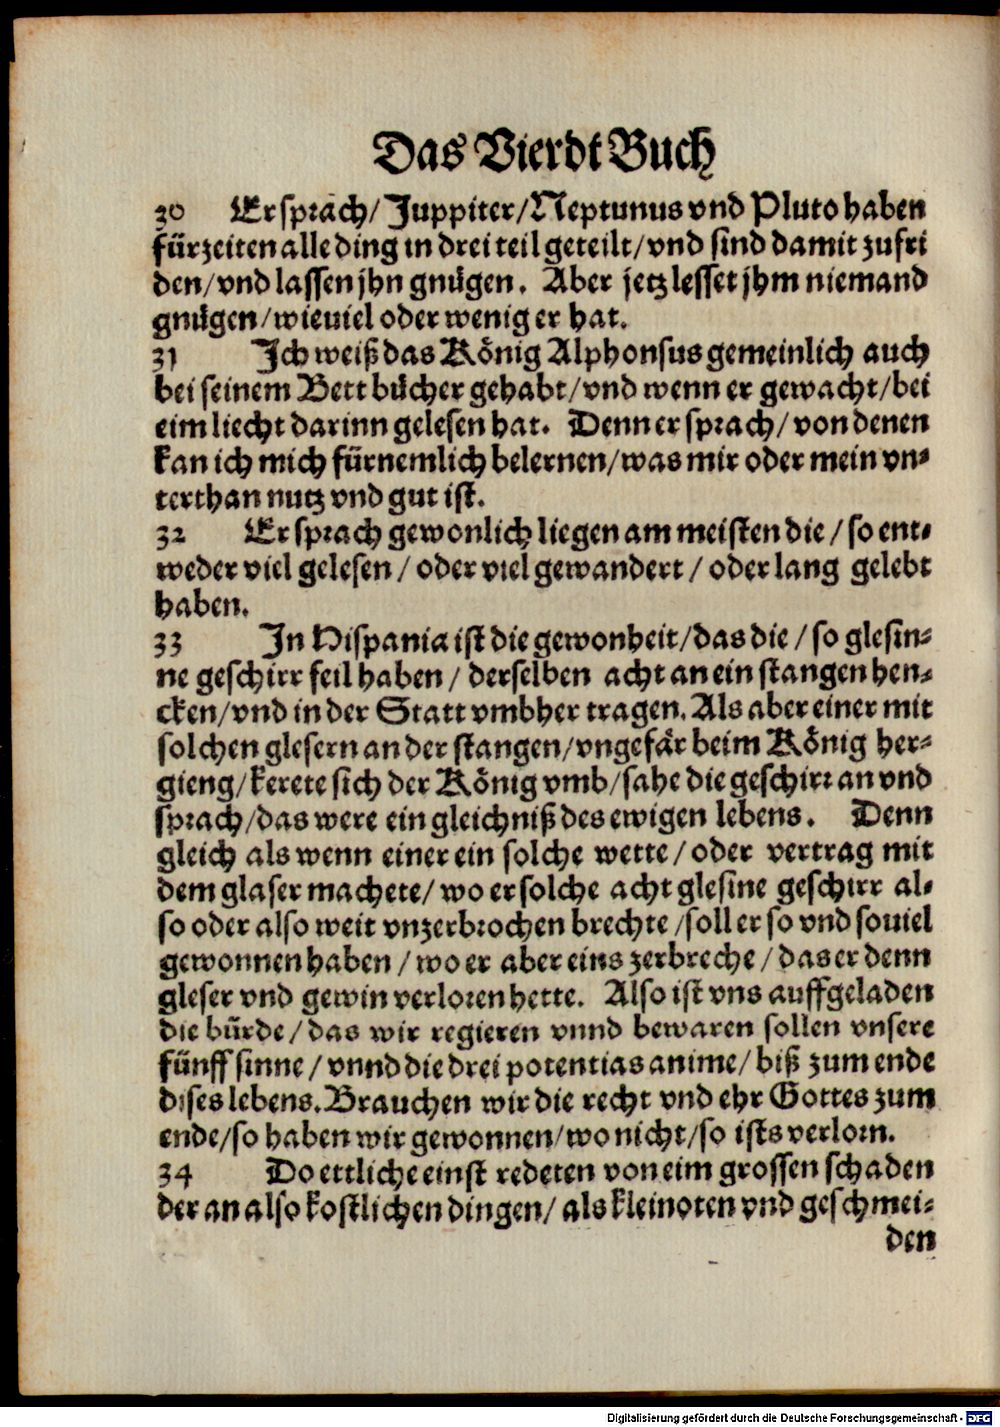 Das Vierdt Buch
30 Er sprach/ Juppiter/ Neptunus vnd Pluto haben
fürzeiten alle ding in drei teil geteilt/ vnd sind damit zufri
den/ vnd lassen jhn gnügen. Aber jetz lesset jhm niemand
gnügen/ wieuiel oder wenig er hat.
31 Ich weiß das König Alphonsus gemeinlich auch
bei seinem Bett bücher gehabt/ vnd wenn er gewacht/ bei
eim liecht darinn gelesen hat. Denn er sprach/ von denen
kan ich mich fürnemlich belernen/ was mir oder mein vn-
terthan nutz vnd gut ist.
32 Er sprach gewonlich liegen am meisten die / so ent-
weder viel gelesen / oder viel gewandert / oder lang gelebt
haben.
33 In Hispania ist die gewonheit/ das die / so glesin-
ne geschirr feil haben / derselben acht an ein stangen hen-
cken/ vnd in der Statt vmbher tragen. Als aber einer mit
solchen glesern an der stangen/ vngefär beim König her-
gieng/ kerete sich der König vmb/ sahe die geschirr an vnd
sprach/ das were ein gleichniß des ewigen lebens. Denn
gleich als wenn einer ein solche wette/ oder vertrag mit
dem glaser machete/ wo er solche acht glesine geschirr al-
so oder also weit vnzerbrochen brechte / soll er so vnd souiel
gewonnen haben / wo er aber eins zerbreche / das er denn
gleser vnd gewin verloren hette. Also ist vns auffgeladen
die bürde/ das wir regieren vnnd bewaren sollen vnsere
fünff sinne / vnnd die drei potentias anime/ biß zum ende
dises lebens. Brauchen wir die recht vnd ehr Gottes zum
ende/ so haben wir gewonnen/ wo nicht/ so ists verlorn.
34 Do ettliche einst redeten von eim grossen schaden
der an also kostlichen dingen/ als kleinoten vnd geschmei-
den
Digitalisierung gefördert durch die Deutsche Forschungsgemeinschaft - DFG